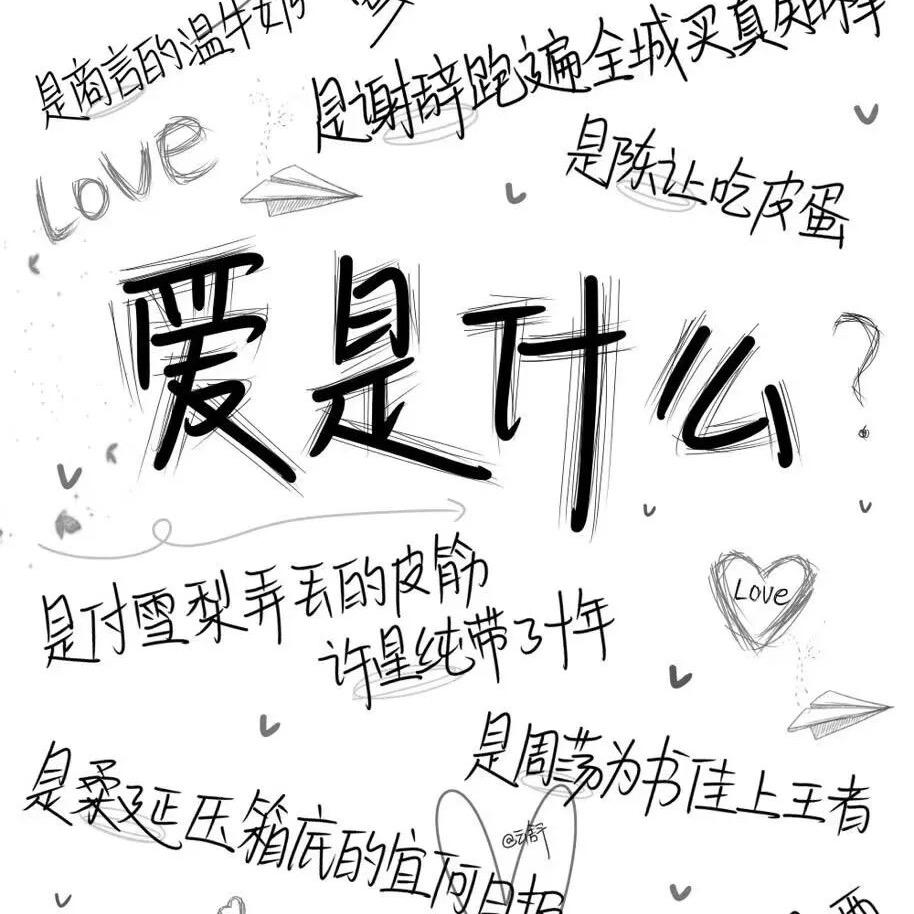 是商言的温牛奶
是谢辞跑遍全城买真知棒
Love
是陈让吃皮蛋
爱是什么?
是付雪梨弄丢的皮筋
许星纯带了十年
Love
是周荡为书佳上王者
是桑延压箱底的宜荷日报